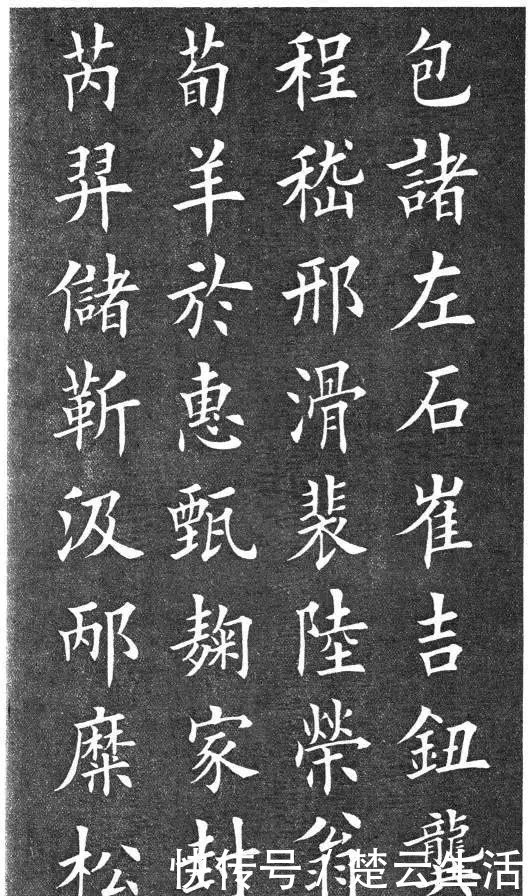 包諸左石崔吉鈕龔
程嵇邢滑裴陸榮翁
荀羊於惠甄麴家封
芮羿儲靳汲邴糜松
快传号/楚云生活